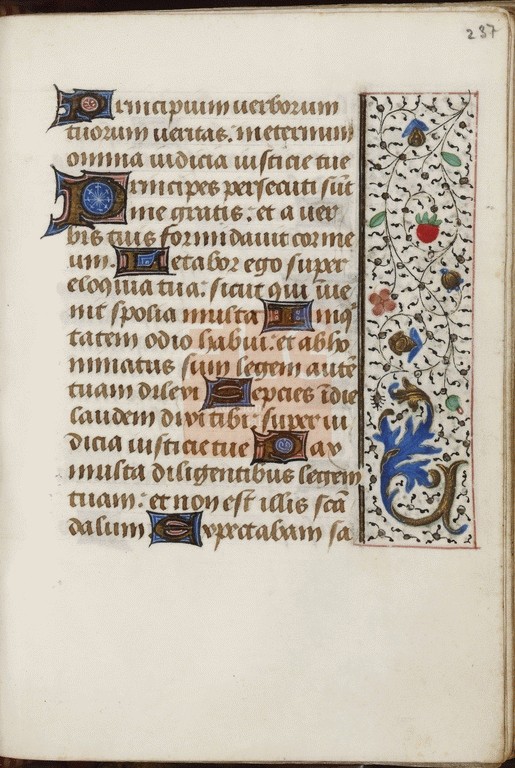 237
Principium uerborum
tuorum ueritas: ineternum
omnia iudicia iusticie tue
Principes persecuti sūt
me gratis: et a uer
bis tuis formidauit cor me
um. Letabor ego super
eloquia tua: sicut qui inue
nit spolia multa Iniq̄
tatem odio habui: et abho
minatus sum legem autē
tuam dilexi Sepcies īdie
laudem dixi tibi: super iu
dicia iusticie tue Pax
multa diligentibus legem
tuam: et non est illis scā
dalum Expectabam sa